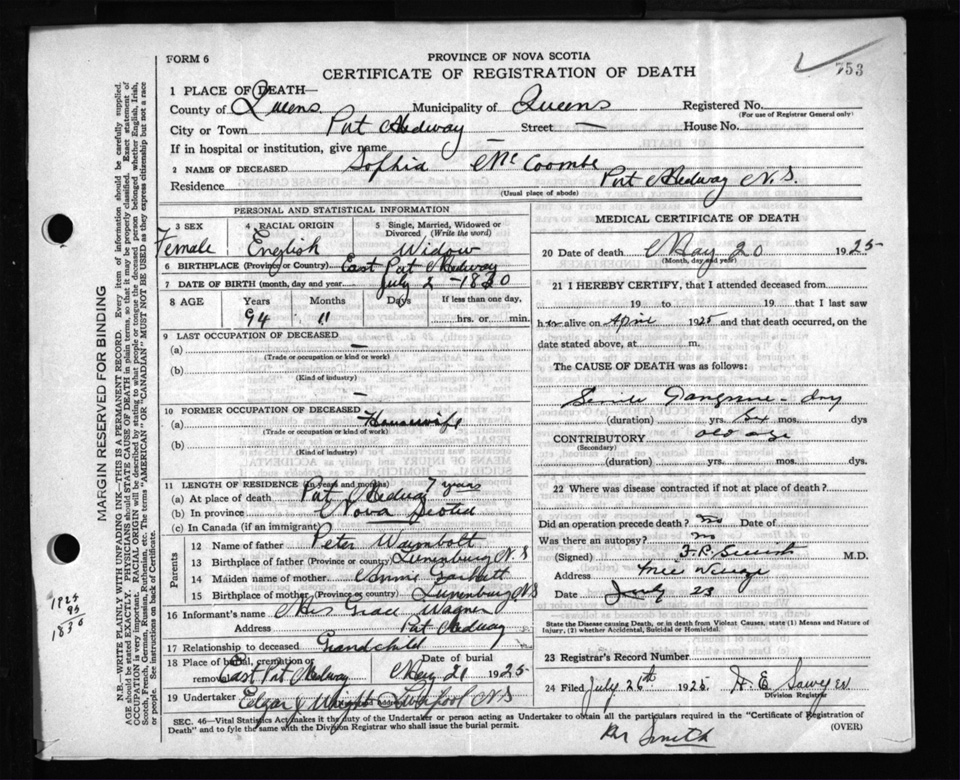 FORM 6
PROVINCE OF NOVA SCOTIA
CERTIFICATE OF REGISTRATION OF DEATH
753
1 PLACE OF DEATH—
County of Queens Municipality of Queens Registered No.
(For use of Registrar General only)
City or Town Port Medway Street — House No.
If in hospital or institution, give name —
2 NAME OF DECEASED Sophia McCoombe
Residence Port Medway N.S.
(Usual place of abode)
PERSONAL AND STATISTICAL INFORMATION
3 SEX 4 RACIAL ORIGIN 5 Single, Married, Widowed or Divorced (Write the word)
Female English Widow
6 BIRTHPLACE (Province or Country) East Port Medway
7 DATE OF BIRTH (month, day and year) July 2 - 1830
8 AGE Years Months Days If less than one day,
94 11 hrs. or min.
9 LAST OCCUPATION OF DECEASED
(a) —
(Trade or occupation or kind of work)
(b)
(Kind of industry)
—
10 FORMER OCCUPATION OF DECEASED
(a) Housewife
(Trade or occupation or kind of work)
(b)
(Kind of industry)
11 LENGTH OF RESIDENCE (in years and months)
(a) At place of death Port Medway 7 years
(b) In province Nova Scotia
(c) In Canada (if an immigrant)
Parents
12 Name of father Peter Waymbolt
13 Birthplace of father (Province or country) Lunenburg N.S
14 Maiden name of mother Annie
15 Birthplace of mother (Province or country) Lunenburg NS
16 Informant's name Mrs Grace Wagner
Address Port Medway
17 Relationship to deceased Grandchild
18 Place of burial, cremation or removal East Port Medway Date of burial May 21 1925
19 Undertaker Edgar J Liverpool NS
MEDICAL CERTIFICATE OF DEATH
20 Date of death May 20 1925
(Month, day and year)
21 I HEREBY CERTIFY, that I attended deceased from
19 to 19 that I last saw
her alive on April 1925 and that death occurred, on the
date stated above, at m.
The CAUSE OF DEATH was as follows:
Senile Gangrene - dry
(duration) yrs. six mos. dys
CONTRIBUTORY old age
(Secondary)
(duration) yrs. mos. dys.
22 Where was disease contracted if not at place of death?
Did an operation precede death? no Date of
Was there an autopsy? no
(Signed) F.P. Smith M.D.
Address Mill Village
Date July 23
State the Disease causing Death, or in death from Violent Causes, state (1) Means and Nature of Injury, (2) whether Accidental, Suicidal or Homicidal.
23 Registrar's Record Number
24 Filed July 26th 1925 H. E Sawyer
Division Registrar
SEC. 46—Vital Statistics Act makes it the duty of the Undertaker or person acting as Undertaker to obtain all the particulars required in the "Certificate of Registration of
Death" and to fyle the same with the Division Registrar who shall issue the burial permit.
(OVER)
Per Smith
MARGIN RESERVED FOR BINDING
N.B.—WRITE PLAINLY WITH UNFADING INK—THIS IS A PERMANENT RECORD. Every item of information should be carefully supplied.
AGE should be stated EXACTLY. PHYSICIANS should STATE CAUSE OF DEATH in plain terms, so that it may be properly classified. Exact statement of
OCCUPATION is very important. RACIAL ORIGIN will be described by stating to what people or tongue the deceased person belonged whether English, Irish,
Scotch, French, German, Russian, Ruthenian, etc. The terms "AMERICAN" or "CANADIAN" MUST NOT BE USED as they express citizenship but not a race
or people. See instructions on back of Certificate.
1925
95
1830